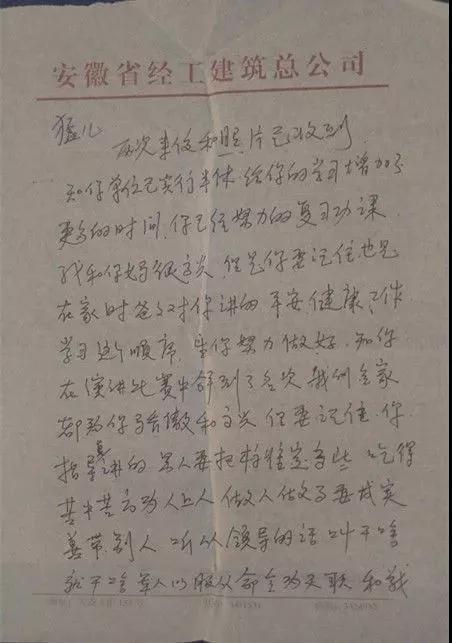 安徽省经工建筑总公司
猛儿
两次来信和照片已收到
知你单位已实行半休给你的学习增加了
更多的时间，你已经努力的复习功课，
我和你妈很高兴，但是你要记住也是
在家时爸爸对你讲的平安健康工作
学习这个顺序，望你努力做好，知你
在演讲比赛中拿到了名次我们全家
都为你骄傲和高兴但要记住你
指导讲的军人要把标准定高些吃得
苦中苦方为人上人做人做事要成实
善带别人听从领导的话叫干啥
就干啥军人以服从命令为天职和战